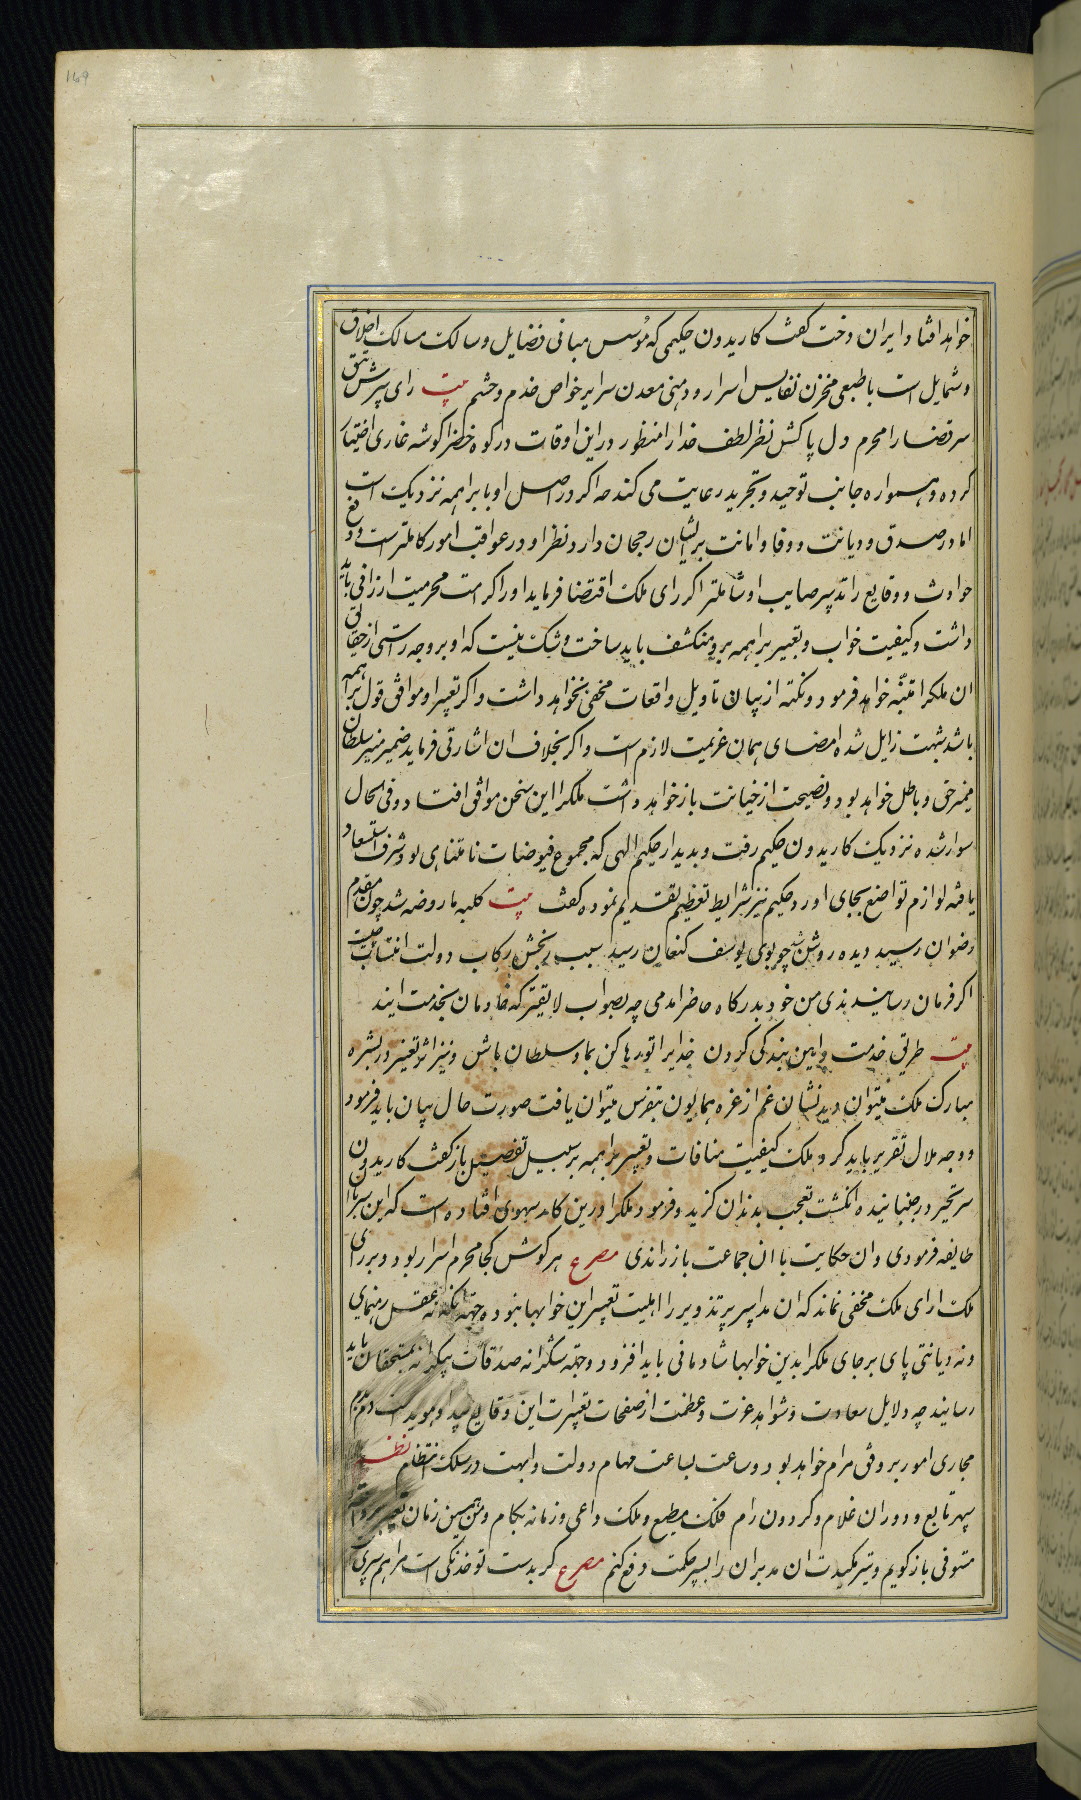 169
خواهد افتاد ایران دخت گفت کاریدون حکیمی که مؤسس مبانی فضایل و سالک مسالک اخلاق
و شمایل است با طبعی مخزن نفایس اسرار و ذهنی معدن سرایر خواص خدم و حشم بیت رای پیرش
سر قضا را محرم دل پاکش نظر لطف خدا را منظور در این اوقات در کوه خضرا گوشه غاری اختیار
کرده و همواره جانب توحید و تجرید رعایت می کند چه اگر در اصل او با براهمه نزدیک است
اما در صدق و دیانت و وفا و امانت بر ایشان رجحان دارد نظر او در عواقب امور کاملترست و دفع
حوادث و وقایع را تدبیر صایب او شاملتر اگر رای ملک اقتضا فرماید او را کرامت محرمیت ارزانی باید
داشت و کیفیت خواب و تعبیر براهمه برو منکشف باید ساخت و شک نیست که او بر وجه راستی از حقایق
ان ملکرا متنبّه خواهد فرمود و نکته از بیان تاویل واقعات مخفی نخواهد داشت و اگر تعبیر او موافق قول براهمه
باشد شبهت زایل شده امضای همان عزیمت لازم است و اگر بخلاف ان اشارتی فرماید ضمیر منیر سلطان
ممیز حق و باطل خواهد بود و نصیحت از خیانت باز خواهد داشت ملکرا این سخن موافق افتاد و فی الحال
سوار شده نزدیک کاریدون حکیم رفت و بدیدار حکیم الهی که مجموع فیوضات نامتناهی بود شرف استسعاد
یافته لوازم تواضع بجای اورد حکیم نیز شرایط تعظیم تقدیم نموده گفت بیت کلبه ما روضه شد چون مقدم
رضوان رسید دیده روشن شد چو بوی یوسف کنعان رسید سبب رنجش رکاب دولت انتساب چیست
اگر فرمان رسانیدندی من خود بدرگاه حاضر امدمی چه بصواب لایقتر که خادمان بخدمت ایند
بیت طریق خدمت و ایین بندگی کردن خدایرا تو رها کن بما و سلطان باش و نیز اثر تغییر در بشره
مبارک ملک میتوان دید نشان غم از غره همایون بتفرس میتوان یافت صورت حال بیان باید فرمود
و وجه ملال تقریر باید کرد ملک کیفیت منامات و تعبیر براهمه بر سبیل تفصیل باز گفت کاریدون
سر تحیر در جنبانیده انگشت تعجب بدندان گزید و فرمود ملکرا درین کار سهوی افتاده است که این سر با ان
طایفه فرمودی و ان حکایت با ان جماعت باز راندی مصرع هر گوش کجا محرم اسرار بود و بر رای
ملک ارای ملک مخفی نماند که ان مدابیر پر تزویر را اهلیت تعبیر این خوابها نبوده جهة انکه نه عقل رهنمای
و نه دیانتی پای بر جای ملکرا بدین خوابها شادمانی باید افزود و جهة شکرانه صدقات بیکرانه بمستحقان باید
رسانید چه دلایل سعادت و شواهد عزت و عظمت از صفحات تعبیرات این وقایع پیدا و هویداست دم بدم
مجاری امور بر وفق مرام خواهد بود و ساعت بساعت مهام دولت و ابهت در سلک انتظام نظم
سپهر تابع و دوران غلام و گردون رام فلک مطیع و ملک داعی و زمانه بکام و من همین زمان تعبیر
مستوفی باز گویم و تیر مکیدت ان مدبران را بسپر حکمت دفع کنم مصرع گر بدست تو خدنگی است مرا هم سپری